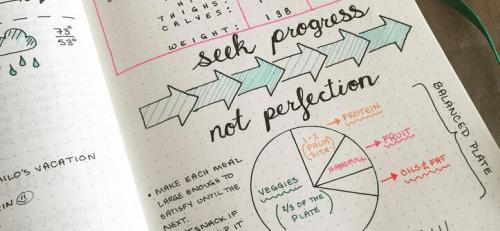 73°
53°
THIGHS:
CALVES:
WEIGHT: 138
seek progress
not perfection
1-2
(PALM)
SIZE
→ PROTEIN
HANDFULL
→ FRUIT
→ OILS & FAT
VEGGIES
(2/3 OF THE
PLATE)
BALANCED PLATE
• MAKE EACH MEAL
LARGE ENOUGH TO
SATISFY UNTIL THE
NEXT.
SNACK IF
IT
ILO'S VACATION
IN 11